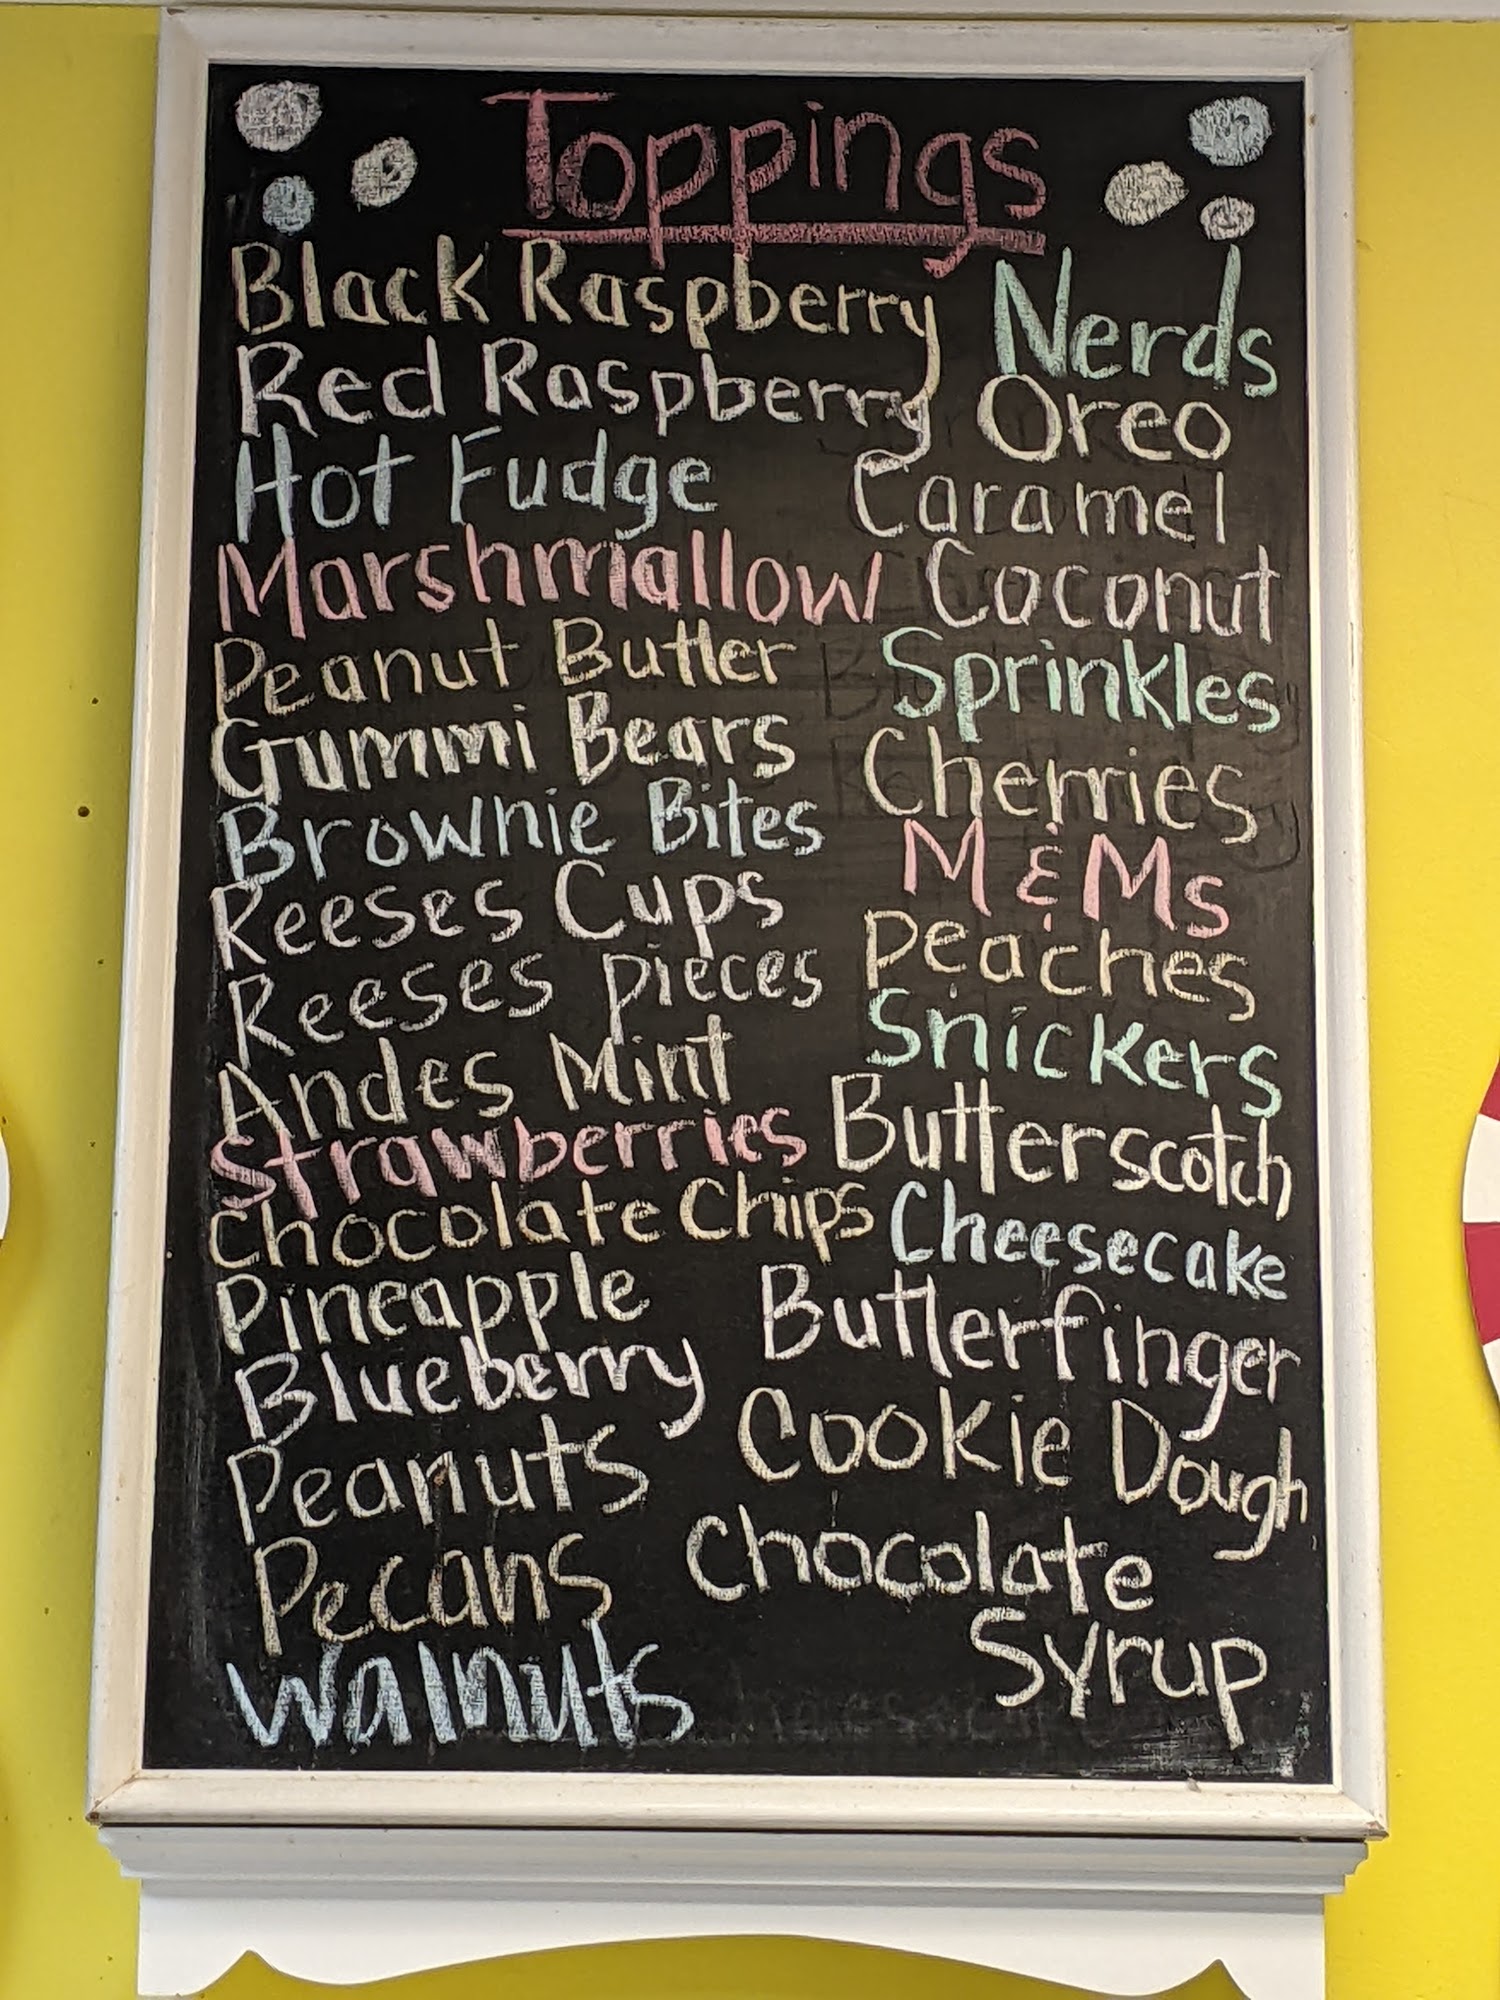 Toppings
Black Raspberry
Red Raspberry
Hot Fudge
Marshmallow
Peanut Butter
Gummi Bears
Brownie Bites
Reeses Cups
Reeses pieces
Andes Mint
Strawberries
Chocolate Chips
Pineapple
Blueberry
Peanuts
Pecans
Walnuts
Nerds
Oreo
Caramel
Coconut
Sprinkles
Cherries
M & Ms
Peaches
Snickers
Butterscotch
Cheesecake
Butterfinger
Cookie Dough
Chocolate
Syrup